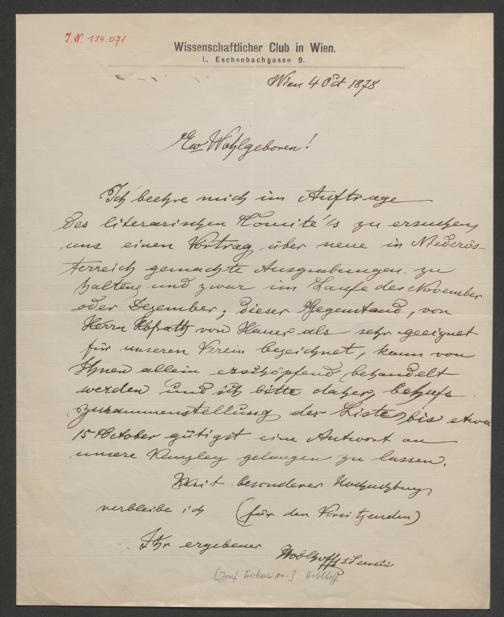 J.N. 134.071
Wissenschaftlicher Club in Wien.
I., Eschenbachgasse 9.
Wien 4 Oct 1878
Ew Wohlgeboren!
Ich beehre mich im Auftrage
des literarischen Comité's zu ersuchen
uns einen Vortrag über neue in Niederös-
terreich gemachte Ausgrabungen zu
halten und zwar im Laufe des November
oder Dezember, dieser Gegenstand, von
Herrn Hofrath von Hauer als sehr geeignet
für unseren Verein bezeichnet, kann von
Ihnen allein erschöpfend behandelt
werden und ich bitte daher, behufs
Zusammenstellung der Liste, bis etwa
15 October gütigst eine Antwort an
unsere Kanzley gelangen zu lassen.
Mit besonderer Hochachtung
verbleibe ich (für den Vorsitzenden)
Ihr ergebener